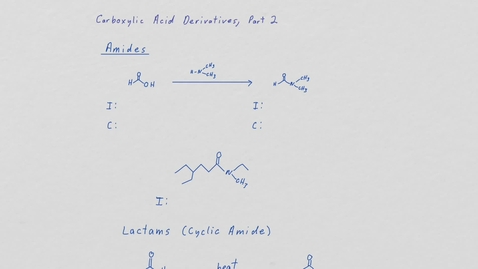 Carboxylic Acid Derivatives, Part 2
Amides
H-N CH3
CH3
H O OH
H O N CH3
CH3
I: I:
C: C:
O
N
CH3
I:
Lactams (Cyclic Amide)
O heat O